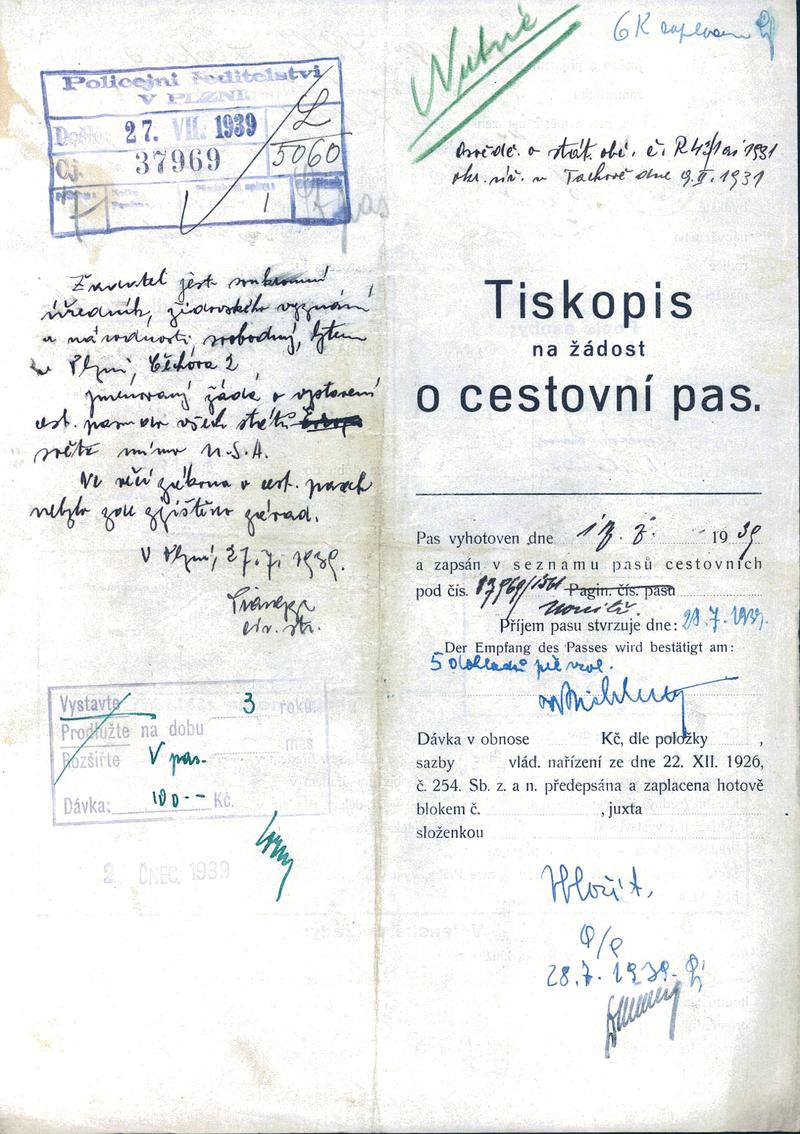 Policejní ředitelství
V PLZNI.
Došlo: 27. VII. 1939
Čj. 37969
5060
1 1
Žadatel jest soukromní
úředník, židovského vyznání
a národnosti, svobodný, bytem
v Plzni, Čechova 2,
jmenovaný žádá o vystavení
cest. pasu do všech států Evropy
světa mimo U.S.A.
Ve věci zákona o cest. pasech
nebylo zde zjištěno závad.
V Plzni, 27. 7. 1939.
Vystavte 3 roků
Prodlužte na dobu
měs
Rozšiřte V pas.
Dávka: 100.-- Kč.
ČNEC. 1939
Nutné
6K zaplaceno
Osvědč. o stát. obč. č.
okr. úř. v Tachově dne 9.II.1931
Tiskopis
na žádost
o cestovní pas.
Pas vyhotoven dne 1939
a zapsán v seznamu pasů cestovních
pod čís. Pagin. čís. pasu
Příjem pasu stvrzuje dne: 28.7.1939.
Der Empfang des Passes wird bestätigt am:
5 dokladů
Dávka v obnose Kč, dle položky ,
sazby vlád. nařízení ze dne 22. XII. 1926,
č. 254. Sb. z. a n. předepsána a zaplacena hotově
blokem č. , juxta
složenkou
28.7.1939.